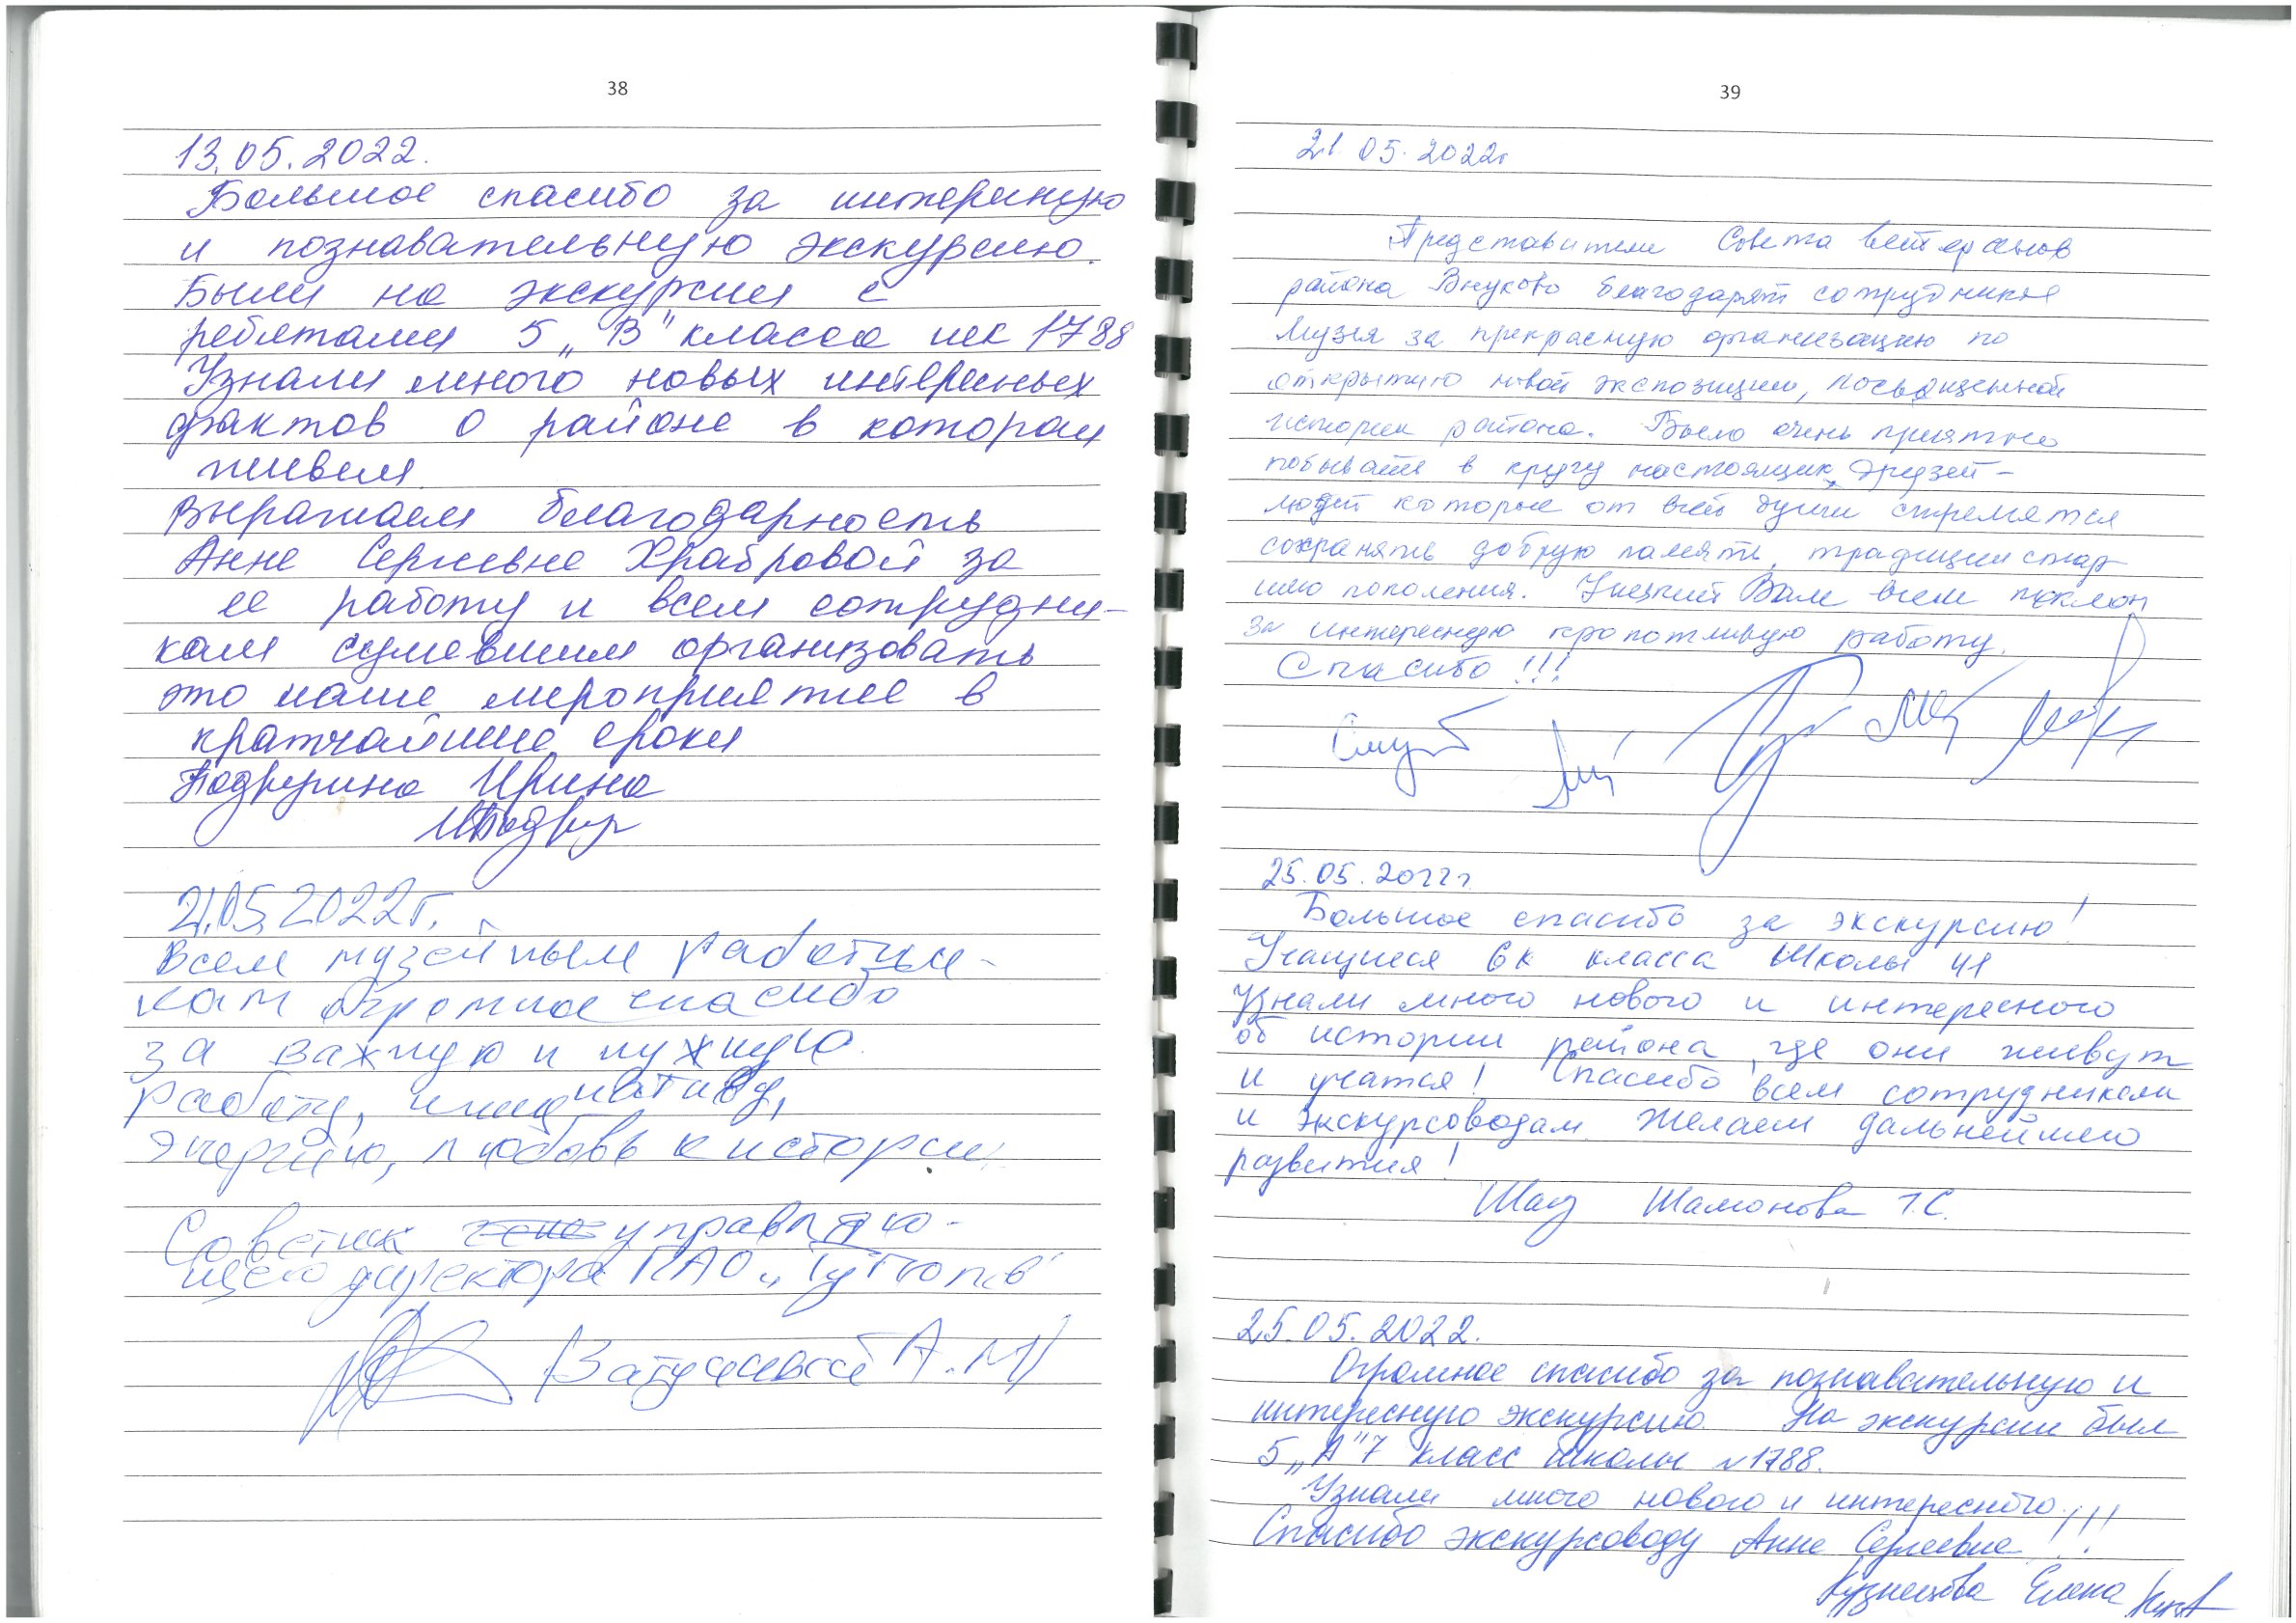 38
13.05.2022.
Большое спасибо за интересную
и познавательную экскурсию.
Были на экскурсии с
ребятами 5 „В" класса шк 1788
Узнали много новых интересных
фактов о районе в котором
живем.
Выражаем благодарность
Анне Сергеевне Храбровой за
ее работу и всем сотрудни-
кам сумевшим организовать
это наше мероприятие в
кратчайшие сроки
Ирина
21.05.2022г.
Всем музейным работни-
кам огромное спасибо
за важную и нужную
работу, инициативу,
энергию, любовь к истории.
Советник управляю-
щего директора ПАО „Туполев"
А.М/
39
21.05.2022г
Представители Совета ветеранов
района Внуково благодарят сотрудников
музея за прекрасную организацию по
открытию новой экспозиции, посвященной
истории района. Было очень приятно
побывать в кругу настоящих друзей –
людей которые от всей души стремятся
сохранять добрую память, традиции стар
шего поколения. Низкий Вам всем поклон
за интересную кропотливую работу.
Спасибо !!!
25.05.2022г
Большое спасибо за экскурсию!
Учащиеся 6к класса школы 41
узнали много нового и интересного
об истории района, где они живут
и учатся! Спасибо всем сотрудникам
и экскурсоводам. Желаем дальнейшего
развития!
Шамонова Т.С.
25.05.2022.
Огромное спасибо за познавательную и
интересную экскурсию. На экскурсии был
5 „А"7 класс школы №1788.
Узнали много нового и интересного!!!
Спасибо экскурсоводу Анне Сергеевне!!!
Кузнецова Елена